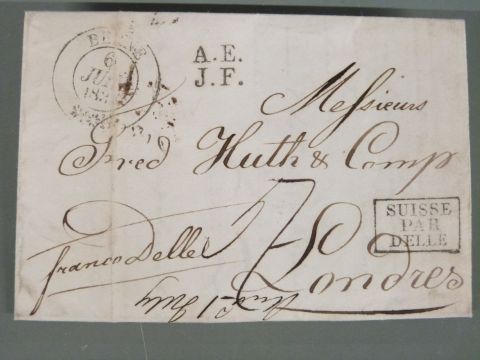 BERNE
6
A.E.
J.F.
Messieurs
Fred Huth & Comp
SUISSE
PAR
DELLE
franco Delle
Londres